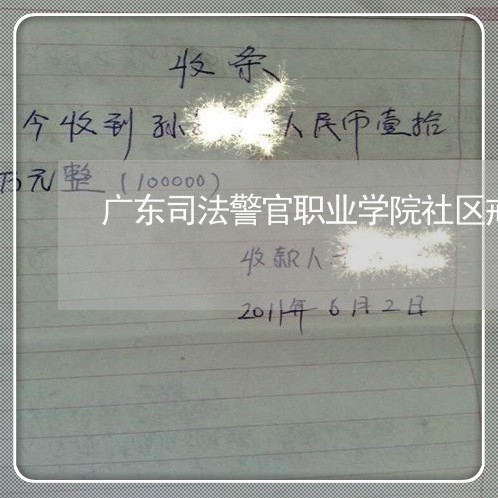 收条
今收到孙 人民币壹拾
万元整（100000）
广东司法警官职业学院社区戒
收款人
2011年6月2日